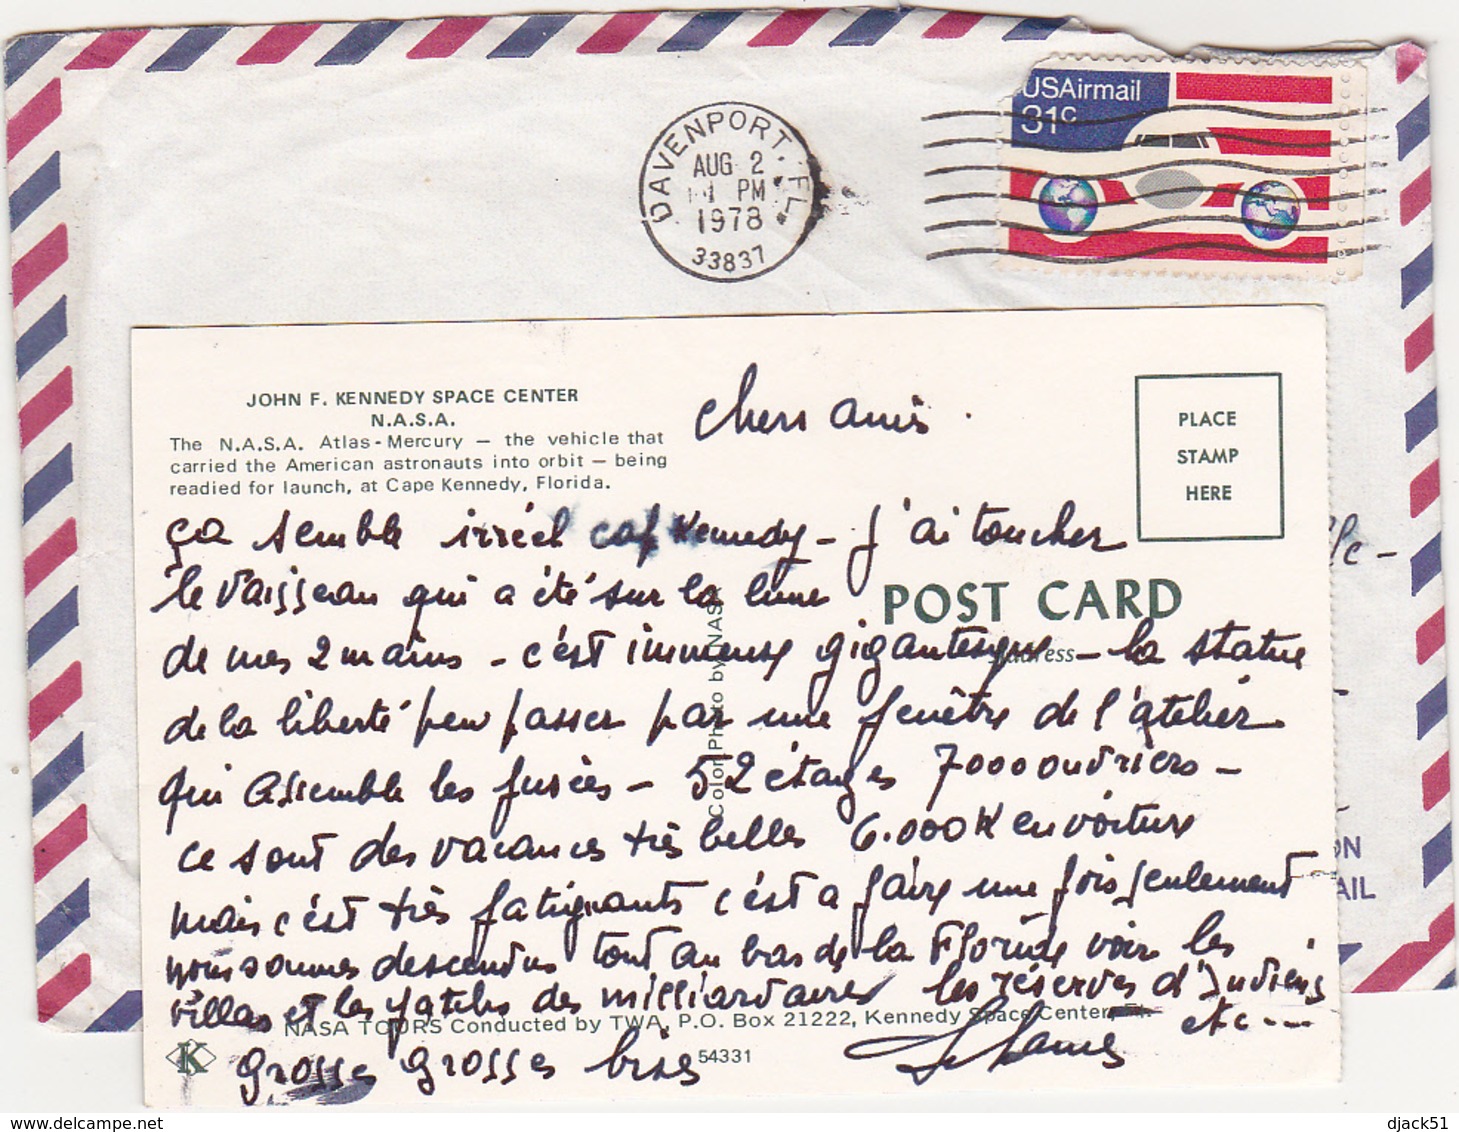 USAirmail
31c
DAVENPORT, FL.
AUG 2
PM
1978
33837
JOHN F. KENNEDY SPACE CENTER
N.A.S.A.
The N.A.S.A. Atlas-Mercury — the vehicle that
carried the American astronauts into orbit — being
readied for launch, at Cape Kennedy, Florida.
PLACE
STAMP
HERE
POST CARD
Address
Color Photo by NASA
chers amis.
ça semble irréel cap Kennedy - j'ai toucher
le vaisseau qui a été sur la lune
de mes 2 mains - c'est immense gigantesque - la statue
de la liberté peu passer par une fenêtre de l'atelier
qui assemble les fusées - 52 étages 7000 ouvriers -
ce sont des vacances très belles 6.000 K en voiture
mais c'est très fatigants c'est a faire une fois seulement
nous sommes descendus tout au bas de la Floride voir les
villas et les yatchs des milliardaires les réserves d'Indiens
etc ---
grosses grosses bises
NASA TOURS Conducted by TWA, P.O. Box 21222, Kennedy Space Center
K
54331
ON
AIL
delcampe.net
djack51